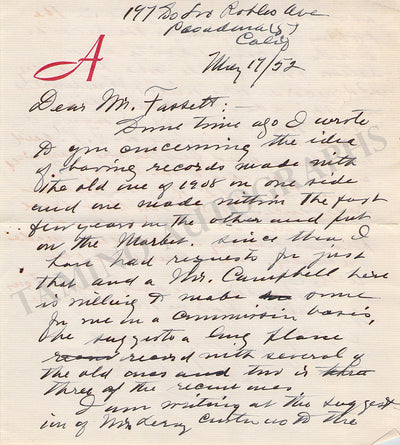 197 So Los Robles Ave
Pasadena 1
Calif
May 17/52
A
Dear Mr. Fassett:-
Some time ago I wrote
to you concerning the idea
of having records made with
the old one of 1908 on one side
and one made within the past
few years on the other and put
on the Market. Since then I
have had requests for just
that and a Mr. Campbell here
is willing to make some
for me on a commission basis,
he suggests a long plane
record with several of
the old ones and two or three
three of the recent ones
I am writing at the suggest
ion of Mr. Curtis to the
TAMINO AUTOGRAPHS